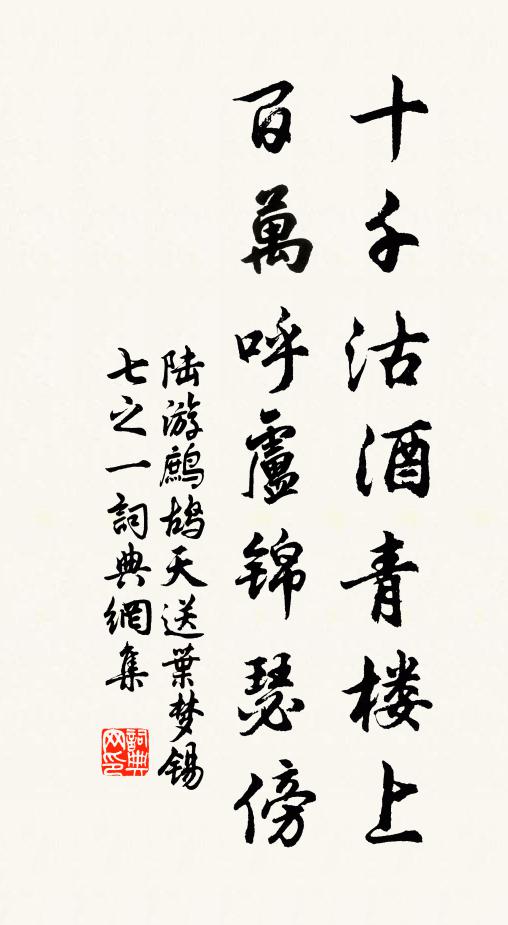 十千沽酒青楼上
百萬呼盧錦瑟傍
陆游鹧鸪天送葉梦锡
七之一詞典網集
詞典网印